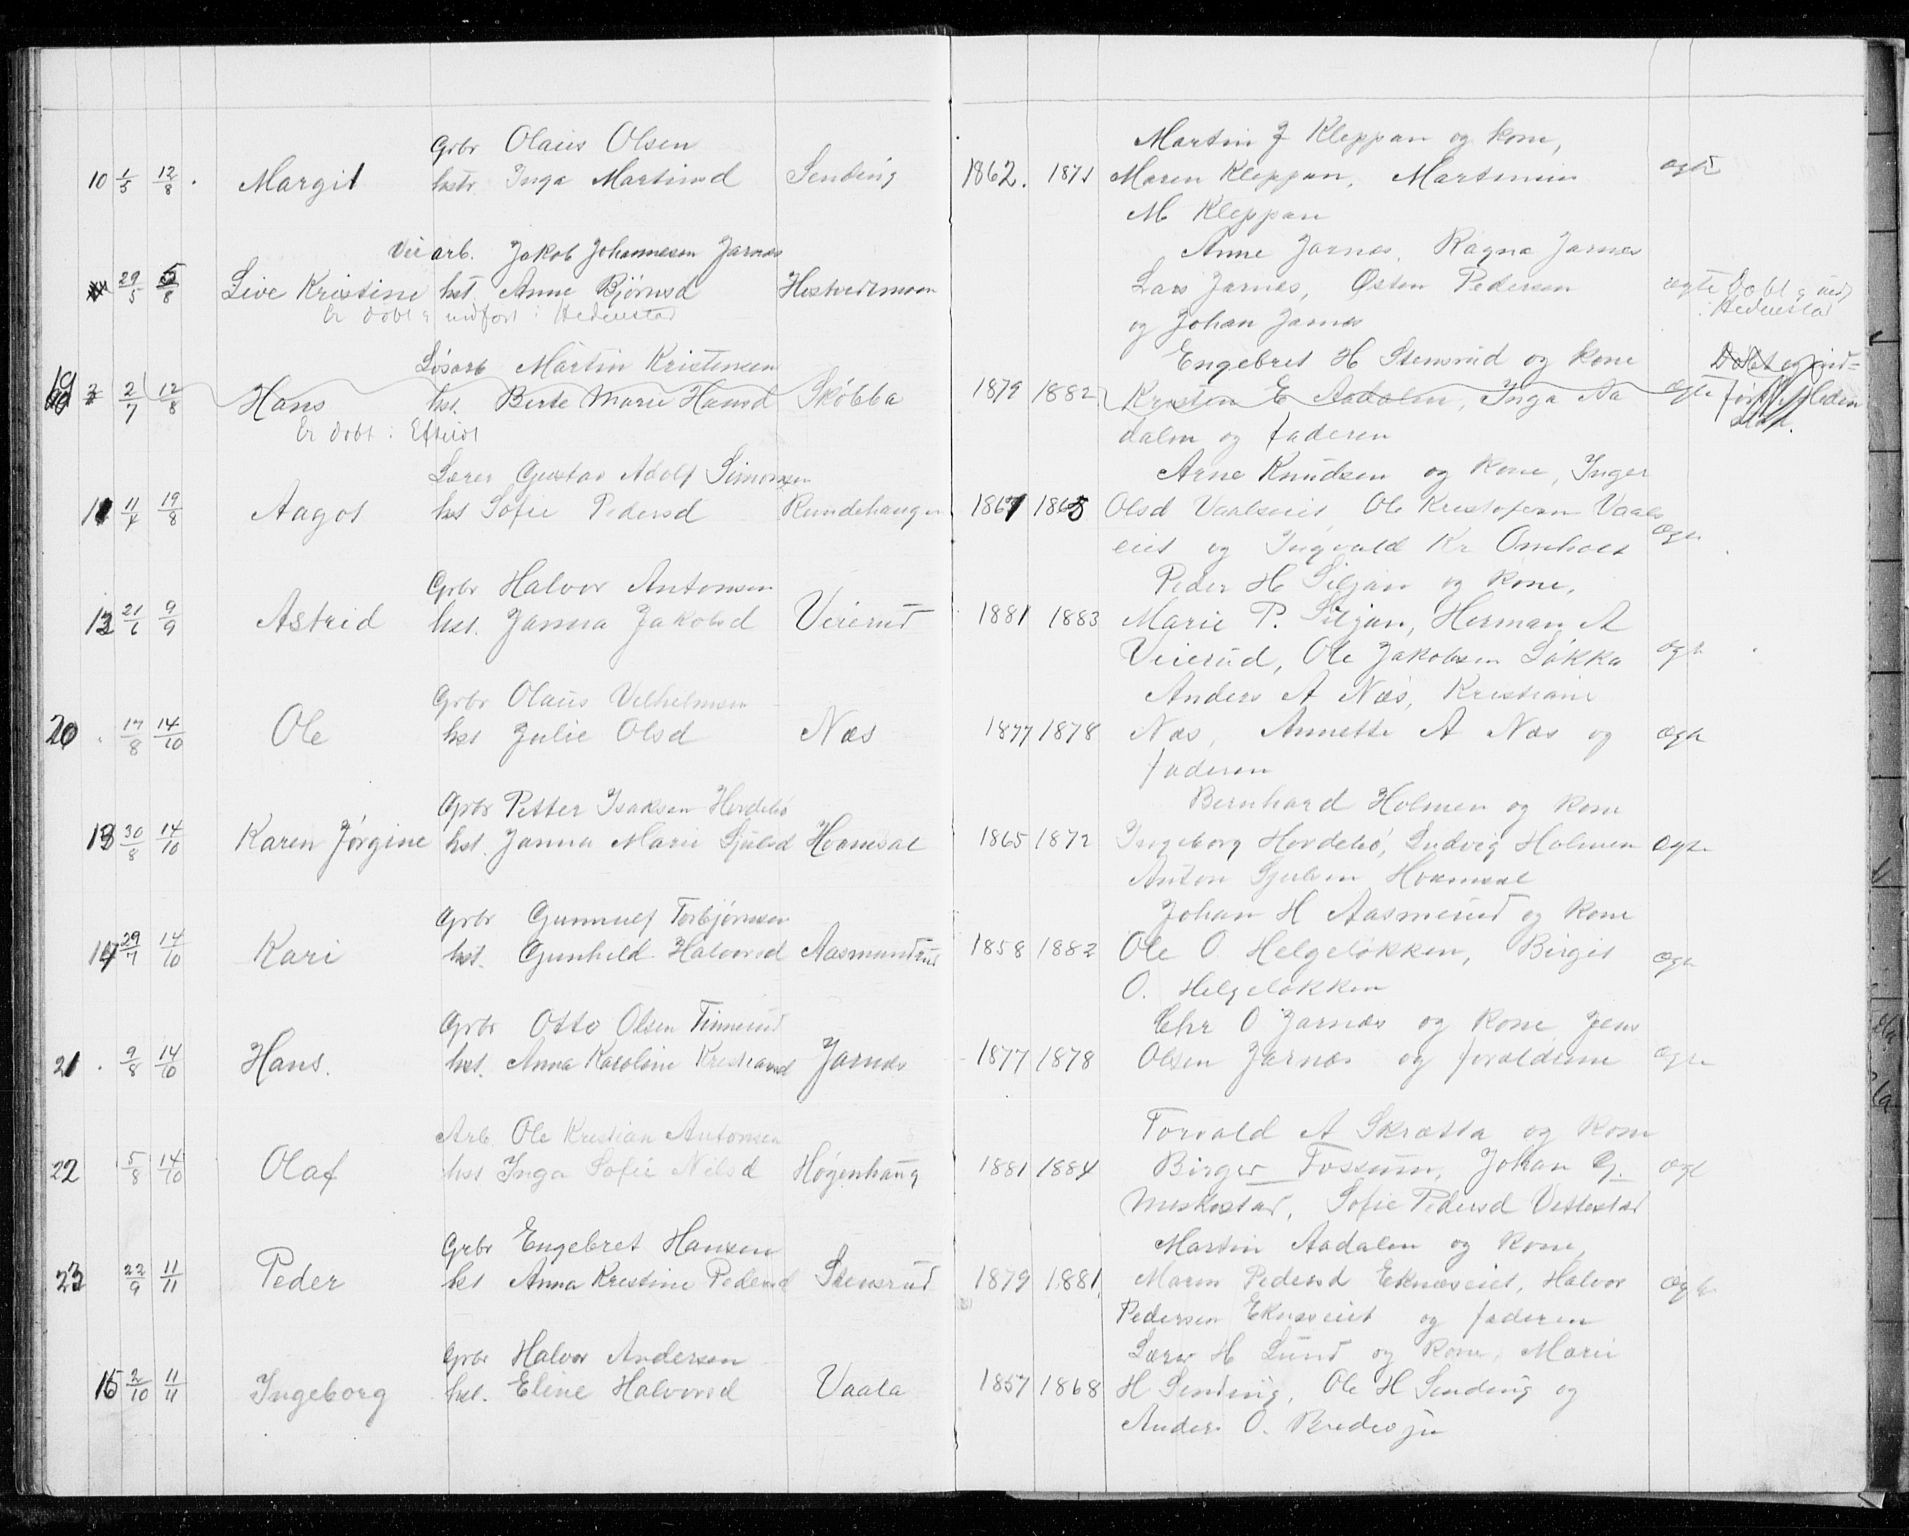 Grbr Olaus Olsen
10 1/5 12/8 . Margit hstr. Inga Martinsd Sending 1862. 1871
Martin J Kleppan og kone,
Maren Kleppan, Martinius
M Kleppan
ægte
Veiarb. Jakob Johannesen Jarnæs
29/5 5/8 Live Kristine hst. Anne Bjørnsd Hostvedtmoen
Er døbt & indført i Hedenstad
Anne Jarnæs, Ragna Jarnæs
Lars Jarnæs, Østen Pedersen
og Johan Jarnæs
ægte Døbt & indf
i Hedenstad
Løsarb Martin Kristensen
19 2/7 12/8 Hans hst. Berte Marie Hansd Skøbba 1879 1882
Er døbt i Efteløt
Engebret H Stensrud og kone
Kristen E Aadalen, Inga Aa
dalen og faderen
ægte
Døbt og ind=
ført i Heden
stad.
Lærer Gustav Adolf Simonsen
11 11/4 19/8 Aagot hst Sofie Pedersd Rundehaugen 1867 1865
Arne Knudsen og kone, Inger
Olsd Vaalseiet, Ole Kristofersen Vaals
eiet og Ingvald Kr Omholt
ægte
Grbr Halvor Antonsen
12 21/6 9/9 Astrid hst. Janna Jakobsd Veierud 1881 1883
Peder H Siljan og kone,
Marie P. Siljan, Herman A
Veierud, Ole Jakobsen Løkka
ægte
Grbr Olaus Vilhelmsen
20 . 17/8 14/10 Ole hst Julie Olsd Næs 1877 1878
Anders A Næs, Kristiane
Næs, Annette A Næs og
faderen
ægte
Grbr Petter Isaksen Hordebø
13 30/8 14/10 Karen Jørgine hst. Janna Marie Sjulsd Hvamsal 1865 1872
Bernhard Holmen og kone
Ingeborg Hordebø, Ludvig Holmen
Anton Sjulsen Hvamsal
ægte
Grbr Gunnulf Torbjørnsen
14 29/7 14/10 Kari hst. Gunhild Halvorsd Aasmundrud 1858 1882
Johan H Aasmerud og kone
Ole O Helgeløkken, Birgit
O. Helgeløkken
ægte
Grbr Otto Olsen Tinnerud
21 . 9/8 14/10 Hans. hst. Anna Karoline Kristiansd Jarnæs 1877 1878
Chr O Jarnæs og kone Jens
Olsen Jarnæs og forældrene
ægte
Arb. Ole Kristian Antonsen
22 5/8 14/10 Olaf hst Inga Sofie Nilsd Høgenhaug 1881 1884
Torvald A Skrætta og kone
Birger Fossum, Johan G.
Meskestad, Sofie Pedersd Vettestad
ægte
Grbr Engebret Hansen
23 22/9 11/11 Peder hst Anna Kristine Pedersd Stensrud 1879 1881.
Martin Aadalen og kone,
Maren Pedersd Eknæseiet, Halvor
Pedersen Eknæseiet og faderen
ægte
Grbr Halvor Andersen
15 2/10 11/11 Ingeborg hst. Eline Halvorsd Vaala 1857 1868
Lærer H Lund og kone, Marie
H Sending, Ole H Sending og
Anders O. Bredesju